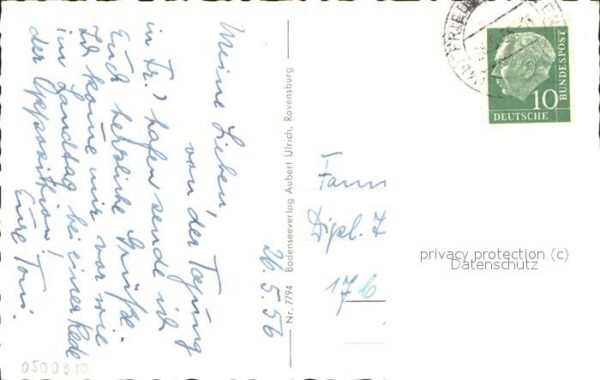 Meine Lieben,
von der Tagung
in Fr.) hafen sende ich
Euch herzliche Grüße.
Ich komme mir vor wie
im Landtag bei einer Rede
der Opposition!
Eure Toni.
26.5.56
Nr. 7794 Bodenseeverlag Aubert Ulrich, Ravensburg
Fam
Dipl. I
17b
FRIED
10
DEUTSCHE
BUNDESPOST
privacy protection (c)
Datenschutz
0500810